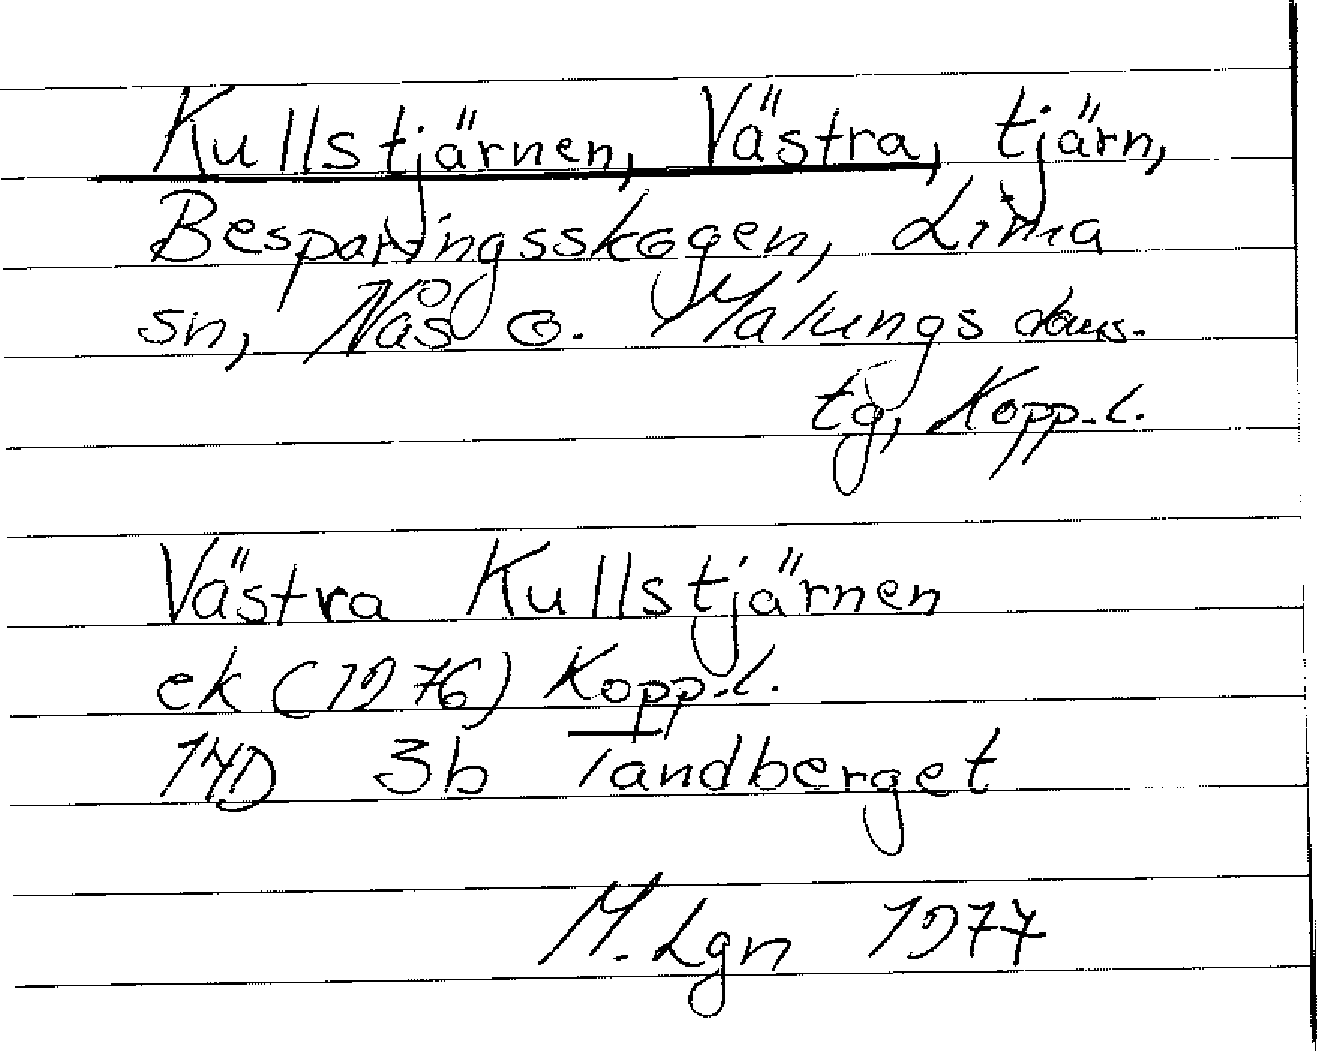 Kullstjärnen, Västra, tjärn,
Besparingsskogen, Lima
sn, Nås o. Malungs doms.
tg, Kopp. l.
Västra Kullstjärnen
ek (1976) Kopp. l.
14D 3b Tandberget
M. Lgn 1977